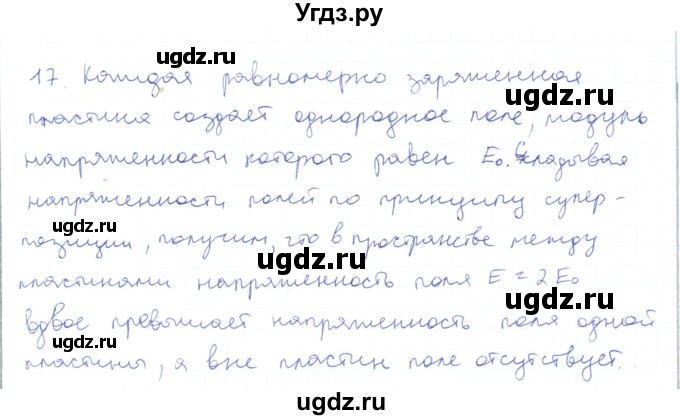 Угдз.ру
17. Каждая равномерно заряженная
пластина создает однородное поле, модуль
напряженности которого равен E₀. Складывая
напряженности полей по принципу супер-
позиции, получим, что в пространстве между
пластинами напряженность поля E = 2E₀
вдвое превышает напряженность поля одной
пластины, а вне пластин поле отсутствует.
ugdz.ru
ugdz.ru
ugdz.ru
ugdz.ru
ugdz.ru
ugdz.ru
ugdz.ru
ugdz.ru